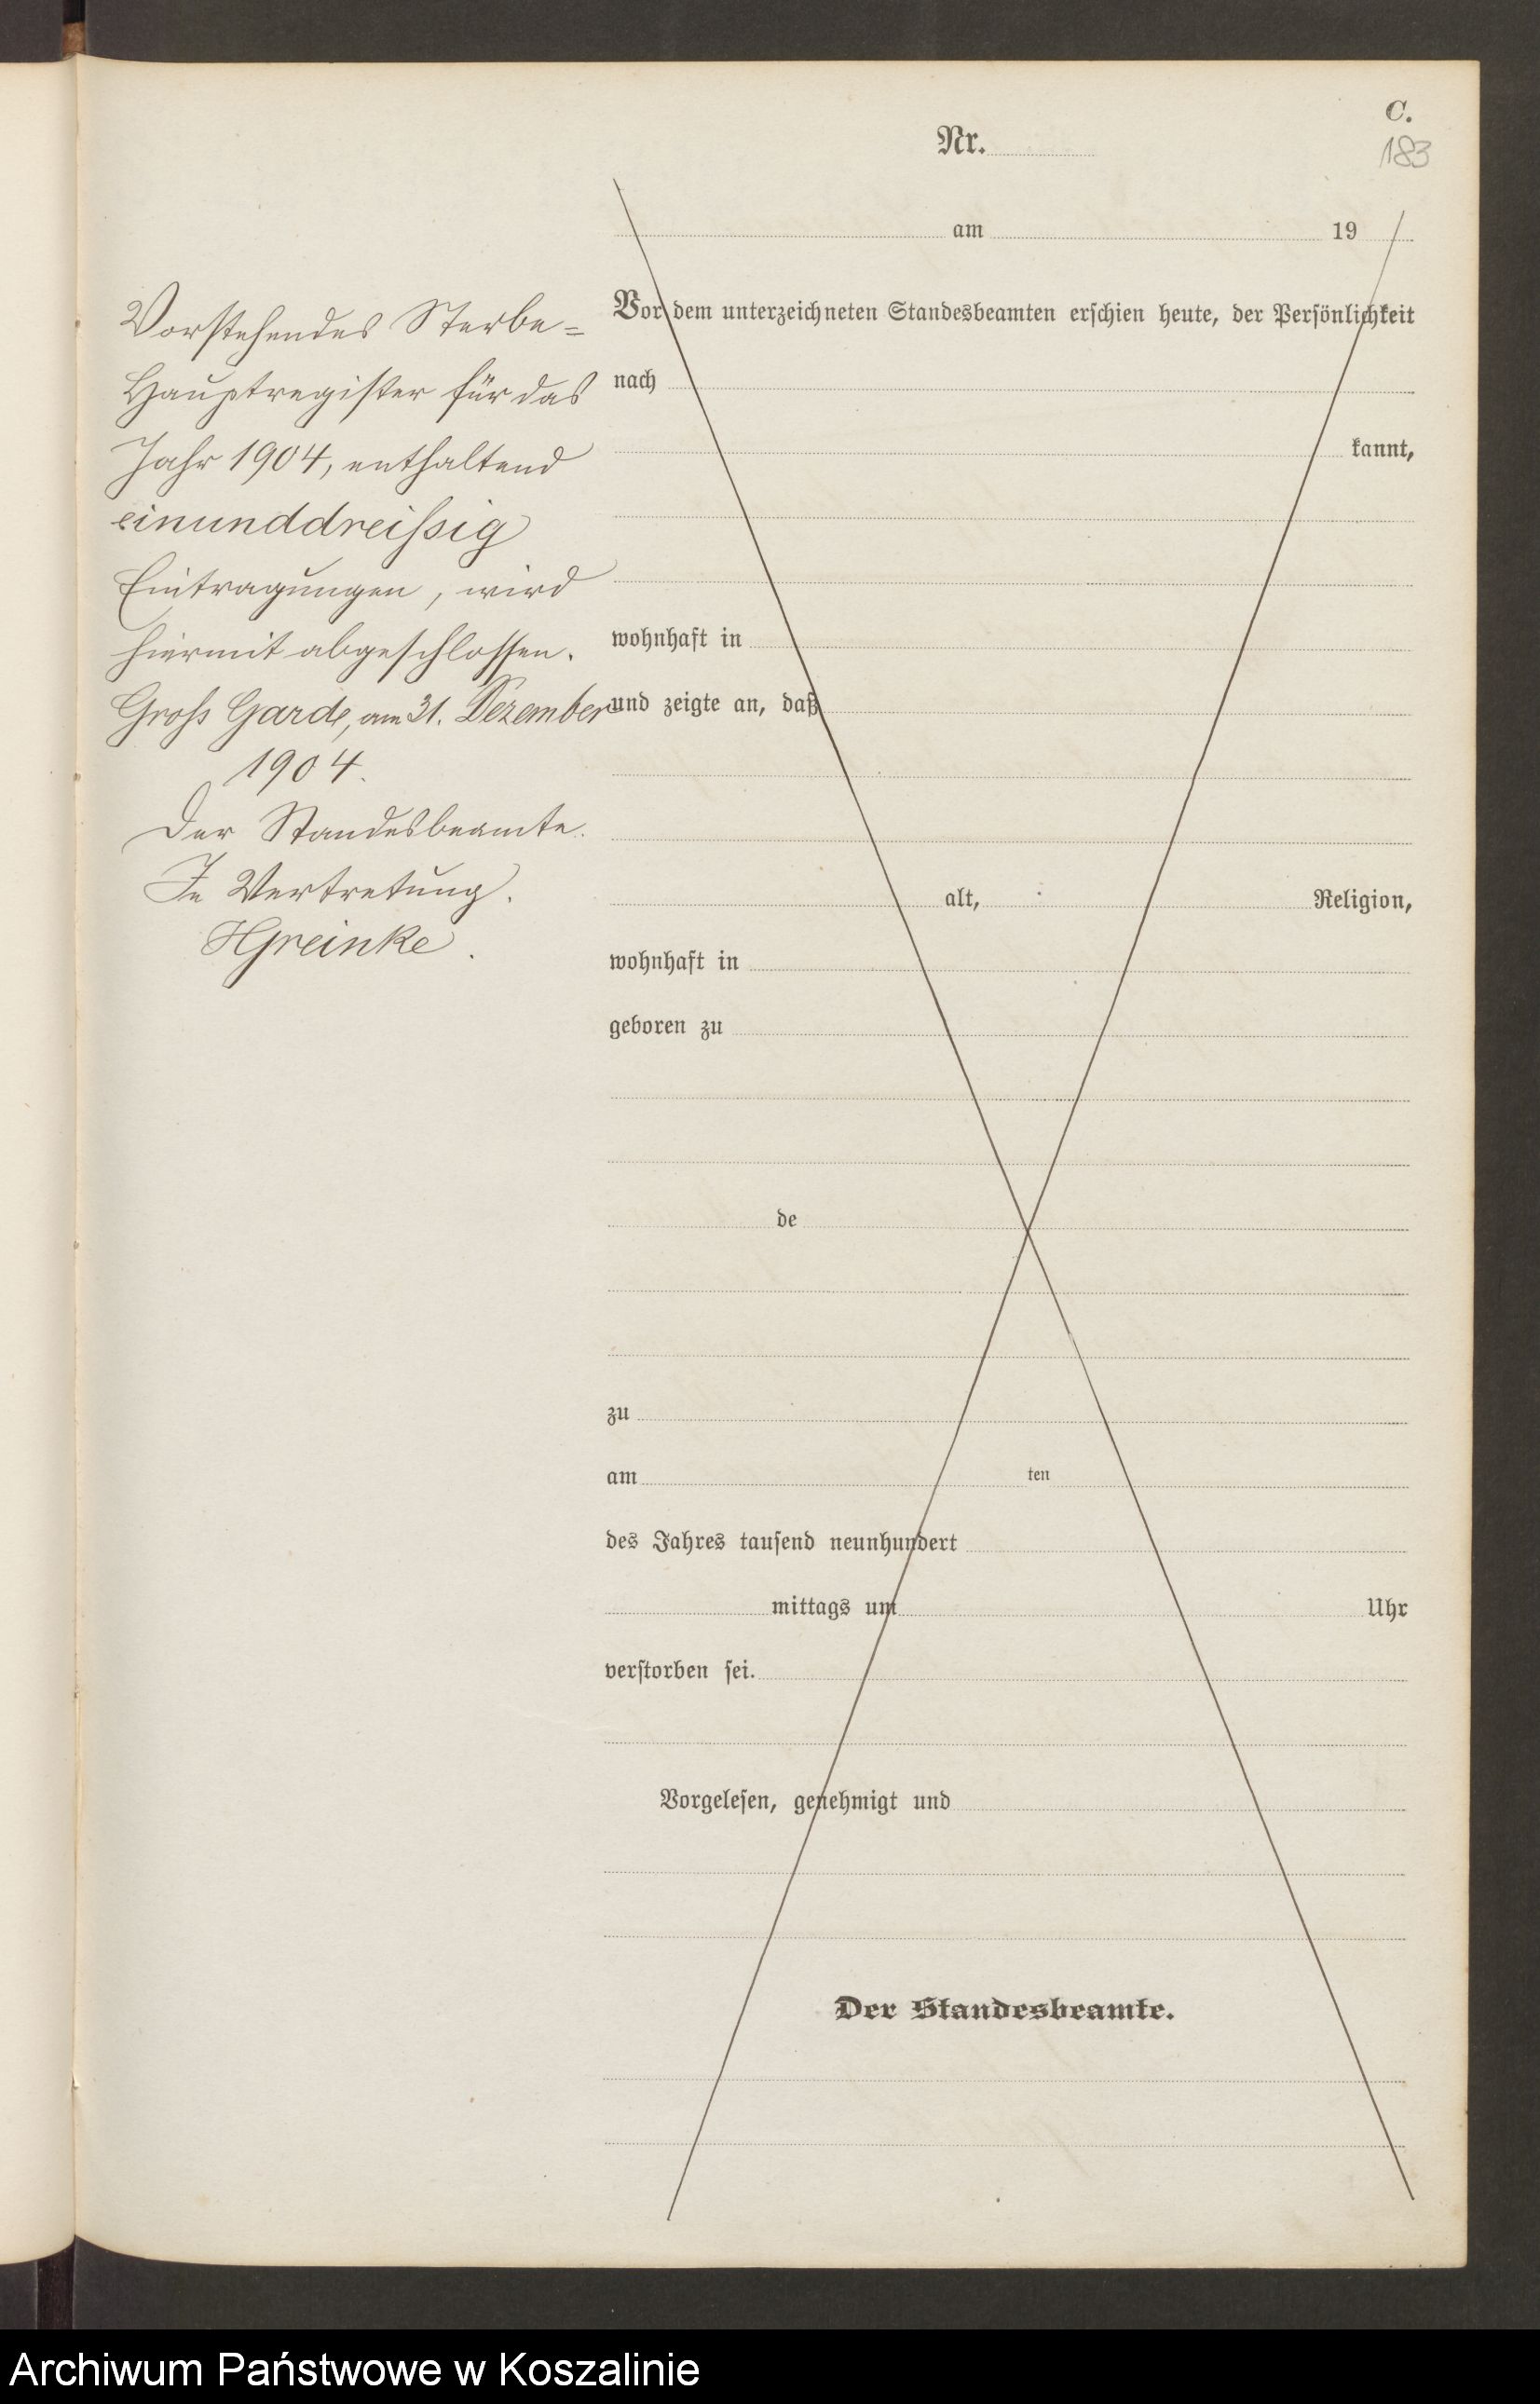 C.
183
Nr.
am 19
Vorstehendes Sterbe=
Hauptregister für das
Jahr 1904, enthaltend
einunddreißig
Eintragungen, wird
hiermit abgeschlossen.
Gross Garde, am 31. Dezember
1904.
Der Standesbeamte.
In Vertretung.
HGreinke.
Vor dem unterzeichneten Standesbeamten erschien heute, der Persönlichkeit
nach
kannt,
wohnhaft in
und zeigte an, daß
alt, Religion,
wohnhaft in
geboren zu
de
zu
am ten
des Jahres tausend neunhundert
mittags um Uhr
verstorben sei.
Vorgelesen, genehmigt und
Der Standesbeamte.
Archiwum Państwowe w Koszalinie